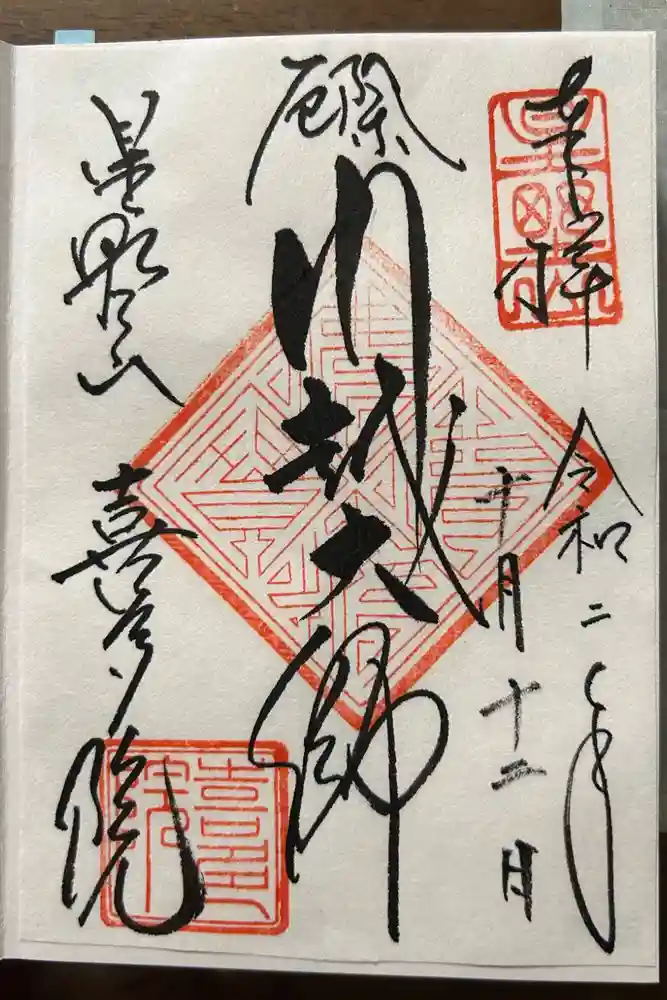 奉拝
令和二年
十月十二日
厄除
川越大師
星野山
喜多院